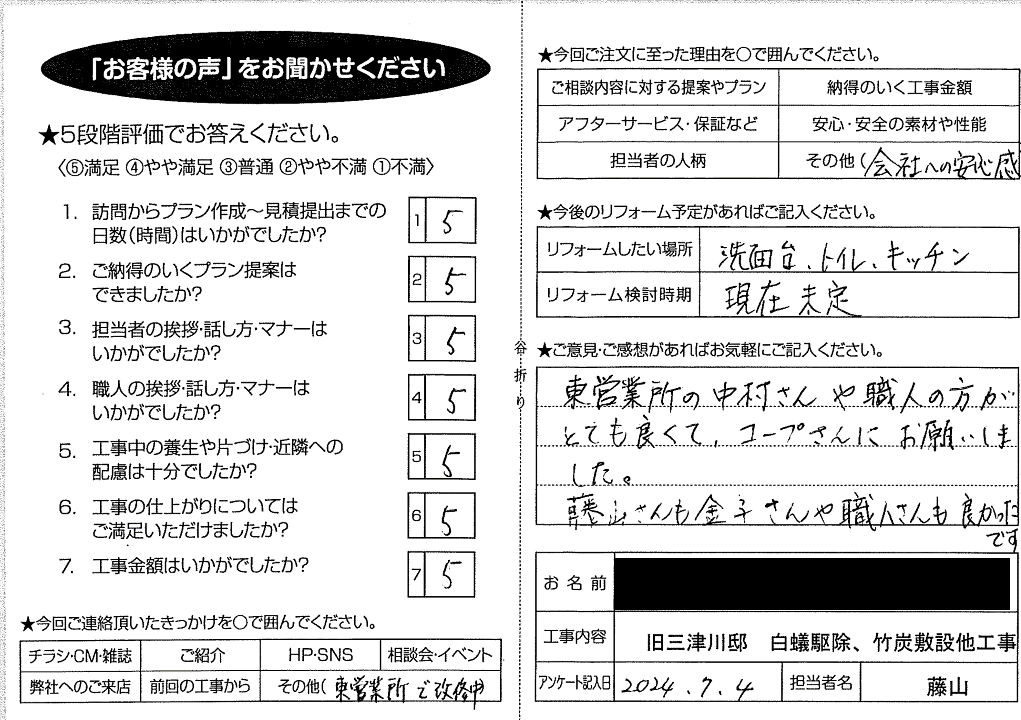 「お客様の声」をお聞かせください
★5段階評価でお答えください。
〈⑤満足 ④やや満足 ③普通 ②やや不満 ①不満〉
1. 訪問からプラン作成～見積提出までの
日数(時間)はいかがでしたか?
1 5
2. ご納得のいくプラン提案は
できましたか?
2 5
3. 担当者の挨拶・話し方・マナーは
いかがでしたか?
3 5
4. 職人の挨拶・話し方・マナーは
いかがでしたか?
4 5
5. 工事中の養生や片づけ・近隣への
配慮は十分でしたか?
5 5
6. 工事の仕上がりについては
ご満足いただけましたか?
6 5
7. 工事金額はいかがでしたか?
7 5
★今回ご連絡頂いたきっかけを○で囲んでください。
チラシ・CM・雑誌 ご紹介 HP・SNS 相談会・イベント
弊社へのご来店 前回の工事から その他( 東営業所で改修中
谷折り
★今回ご注文に至った理由を○で囲んでください。
ご相談内容に対する提案やプラン 納得のいく工事金額
アフターサービス・保証など 安心・安全の素材や性能
担当者の人柄 その他(会社への安心感
★今後のリフォーム予定があればご記入ください。
リフォームしたい場所 洗面台、トイレ、キッチン
リフォーム検討時期 現在未定
★ご意見・ご感想があればお気軽にご記入ください。
東営業所の中村さんや職人の方が
とても良くて、コープさんにお願いしま
した。
藤山さんも金子さんや職人さんも良かった
です
お名前
工事内容 旧三津川邸 白蟻駆除、竹炭敷設他工事
アンケート記入日 2024.7.4 担当者名 藤山